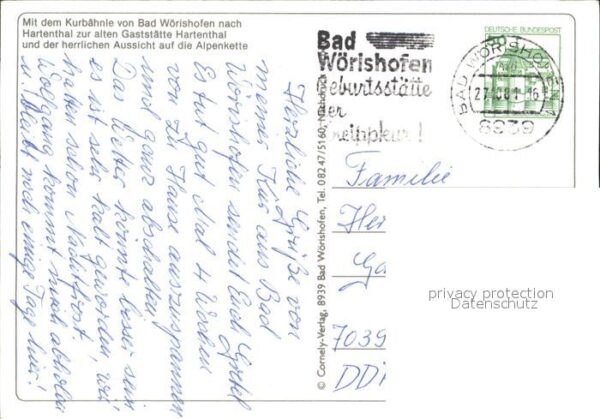 Mit dem Kurbähnle von Bad Wörishofen nach
Hartenthal zur alten Gaststätte Hartenthal
und der herrlichen Aussicht auf die Alpenkette
Herzliche Grüße von
meiner Kur aus Bad
Wörishofen sendet Euch
Es tut gut mal 4 Wochen
von zu Hause auszuspannen
und ganz abschalten.
Das Wetter könnte besser sein
es ist sehr kalt geworden, wir
hatten schon Nachtfrost.
Wolfgang kommt mich abholen
u. bleibt noch einige Tage hier!
© Cornely-Verlag, 8939 Bad Wörishofen, Tel. 082 47/5160, Nachdruck
Bad
Wörishofen
Geburtsstätte
der
Kneippkur!
DEUTSCHE BUNDESPOST
BAD WÖRISHOFEN
8939
Familie
Her
Ga
7039
DD
privacy protection
Datenschutz